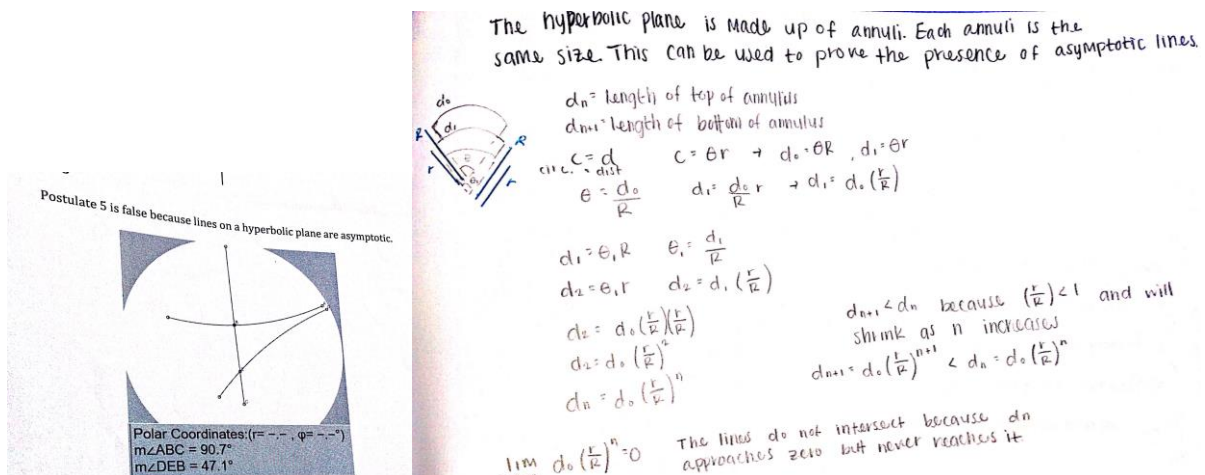 Postulate 5 is false because lines on a hyperbolic plane are asymptotic.
Polar Coordinates:(r= -.- , φ= -.-°)
m∠ABC = 90.7°
m∠DEB = 47.1°
The hyperbolic plane is made up of annuli. Each annuli is the
same size. This can be used to prove the presence of asymptotic lines.
d₀
d₁
R
R
r
r
θ
dₙ = length of top of annulus
dₙ₊₁ = length of bottom of annulus
C = d
circ. = dist
C = θr → d₀ = θR , d₁ = θr
θ = d₀/R d₁ = d₀/R r → d₁ = d₀ (r/R)
d₁ = θ₁R θ₁ = d₁/R
d₂ = θ₁r d₂ = d₁ (r/R)
d₂ = d₀ (r/R)(r/R)
d₂ = d₀ (r/R)²
dₙ = d₀ (r/R)ⁿ
dₙ₊₁ < dₙ because (r/R) < 1 and will
shrink as n increases
dₙ₊₁ = d₀ (r/R)ⁿ⁺¹ < dₙ = d₀ (r/R)ⁿ
lim d₀ (r/R)ⁿ = 0
The lines do not intersect because dn
approaches zero but never reaches it